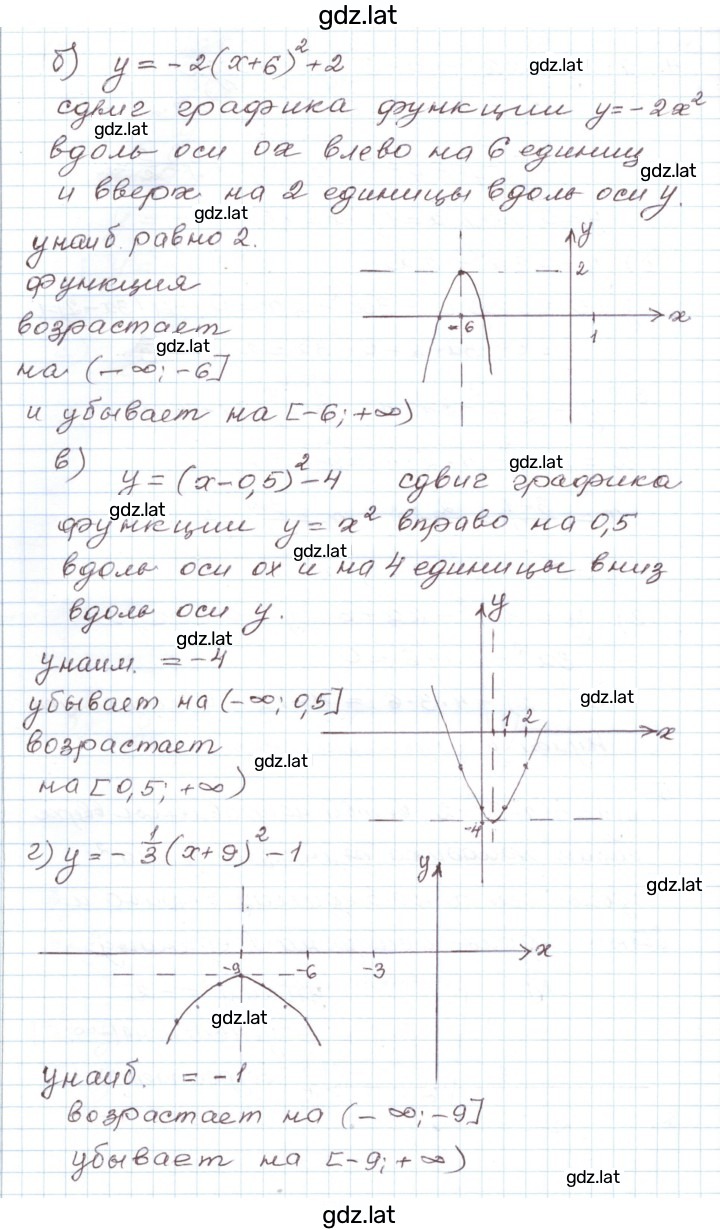 gdz.lat
б) y = -2(x+6)²+2
gdz.lat
сдвиг графика функции y=-2x²
gdz.lat
вдоль оси ox влево на 6 единиц
gdz.lat
и вверх на 2 единицы вдоль оси y.
gdz.lat
y наиб. равно 2.
функция
возрастает
gdz.lat
на (-∞; -6]
и убывает на [-6; +∞)
y
2
-6
1
x
в) y = (x-0,5)²-4 сдвиг графика
gdz.lat
gdz.lat
функции y = x² вправо на 0,5
gdz.lat
вдоль оси ox и на 4 единицы вниз
вдоль оси y.
gdz.lat
y наим. = -4
убывает на (-∞; 0,5]
gdz.lat
возрастает
gdz.lat
на [0,5; +∞)
y
1 2
x
-4
г) y = -1/3(x+9)²-1
gdz.lat
y
x
-9 -6 -3
gdz.lat
y наиб. = -1
возрастает на (-∞; -9]
убывает на [-9; +∞)
gdz.lat
gdz.lat